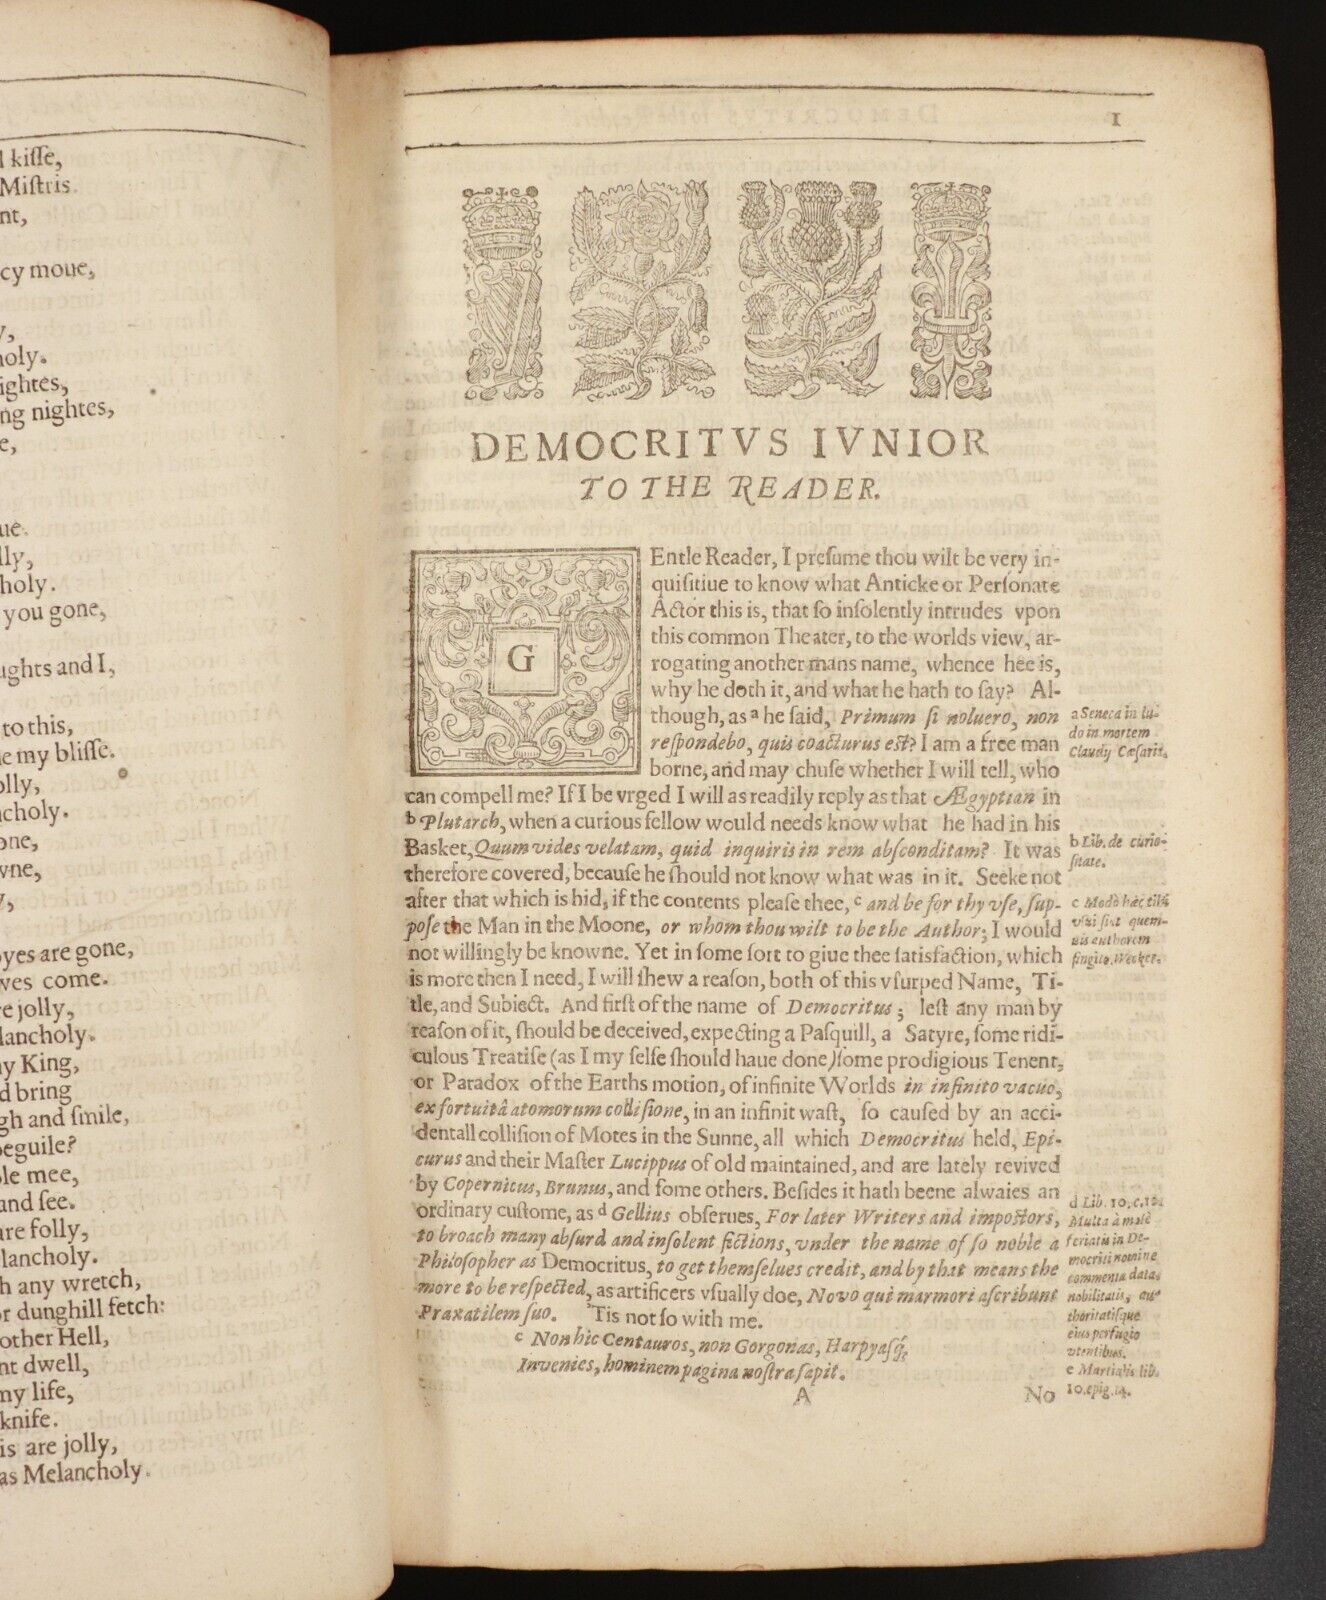 kiſſe,
Miſtris.
nt,
cy moue,
y,
holy.
ightes,
ng nightes,
e,
ue.
lly,
choly.
you gone,
ughts and I,
to this,
e my bliſſe.
olly,
ncholy.
one,
wne,
y,
oyes are gone,
ves come.
re jolly,
lancholy.
ny King,
d bring
gh and ſmile,
beguile?
ole mee,
and ſee.
are folly,
elancholy.
h any wretch,
or dunghill fetch:
other Hell,
nt dwell,
my life,
knife.
is are jolly,
as Melancholy.
1
DEMOCRITVS IVNIOR
TO THE READER.
GEntle Reader, I preſume thou wilt be very in-
quiſitiue to know what Anticke or Perſonate
Actor this is, that ſo inſolently intrudes vpon
this common Theater, to the worlds view, ar-
rogating another mans name, whence hee is,
why he doth it, and what he hath to ſay? Al-
though, as a he ſaid, Primum ſi noluero, non
reſpondebo, quis coacturus eſt? I am a free man
borne, and may chuſe whether I will tell, who
can compell me? If I be vrged I will as readily reply as that Ægyptian in
b Plutarch, when a curious fellow would needs know what he had in his
Basket, Quum vides velatam, quid inquiris in rem abſconditam? It was
therefore covered, becauſe he ſhould not know what was in it. Seeke not
after that which is hid, if the contents pleaſe thee, c and be for thy vſe, ſup-
poſe the Man in the Moone, or whom thou wilt to be the Author; I would
not willingly be knowne. Yet in ſome ſort to giue thee ſatisfaction, which
is more then I need, I will ſhew a reaſon, both of this vſurped Name, Ti-
tle, and Subiect. And firſt of the name of Democritus; leſt any man by
reaſon of it, ſhould be deceived, expecting a Paſquill, a Satyre, ſome ridi-
culous Treatiſe (as I my ſelfe ſhould haue done) ſome prodigious Tenent,
or Paradox of the Earths motion, of infinite Worlds in infinito vacuo,
ex fortuitâ atomorum colliſione, in an infinit waſt, ſo cauſed by an acci-
dentall colliſion of Motes in the Sunne, all which Democritus held, Epi-
curus and their Maſter Lucippus of old maintained, and are lately revived
by Copernicus, Brunus, and ſome others. Beſides it hath beene alwaies an
ordinary cuſtome, as d Gellius obſerues, For later Writers and impoſtors,
to broach many abſurd and inſolent fictions, vnder the name of ſo noble a
Philoſopher as Democritus, to get themſelues credit, and by that means the
more to be reſpected, as artificers vſually doe, Novo qui marmori aſcribunt
Praxatilem ſuo. 'Tis not ſo with me.
e Non hic Centauros, non Gorgonas, Harpyaſq́;
Invenies, hominem pagina noſtra ſapit.
A
No
a Seneca in lu-
do in mortem
Claudij Cæſaris.
b Lib. de curio-
ſitate.
c Modò hæc tibi
vſui ſint quem-
uis authorem
fingito. Wecker.
d Lib. 10. c. 12.
Multa à malè
feriatis in De-
mocriti nomine
commenta data,
nobilitatis, au-
thoritatiſque
eius perfugio
vtentibus.
e Martialis lib.
10. epig. 14.